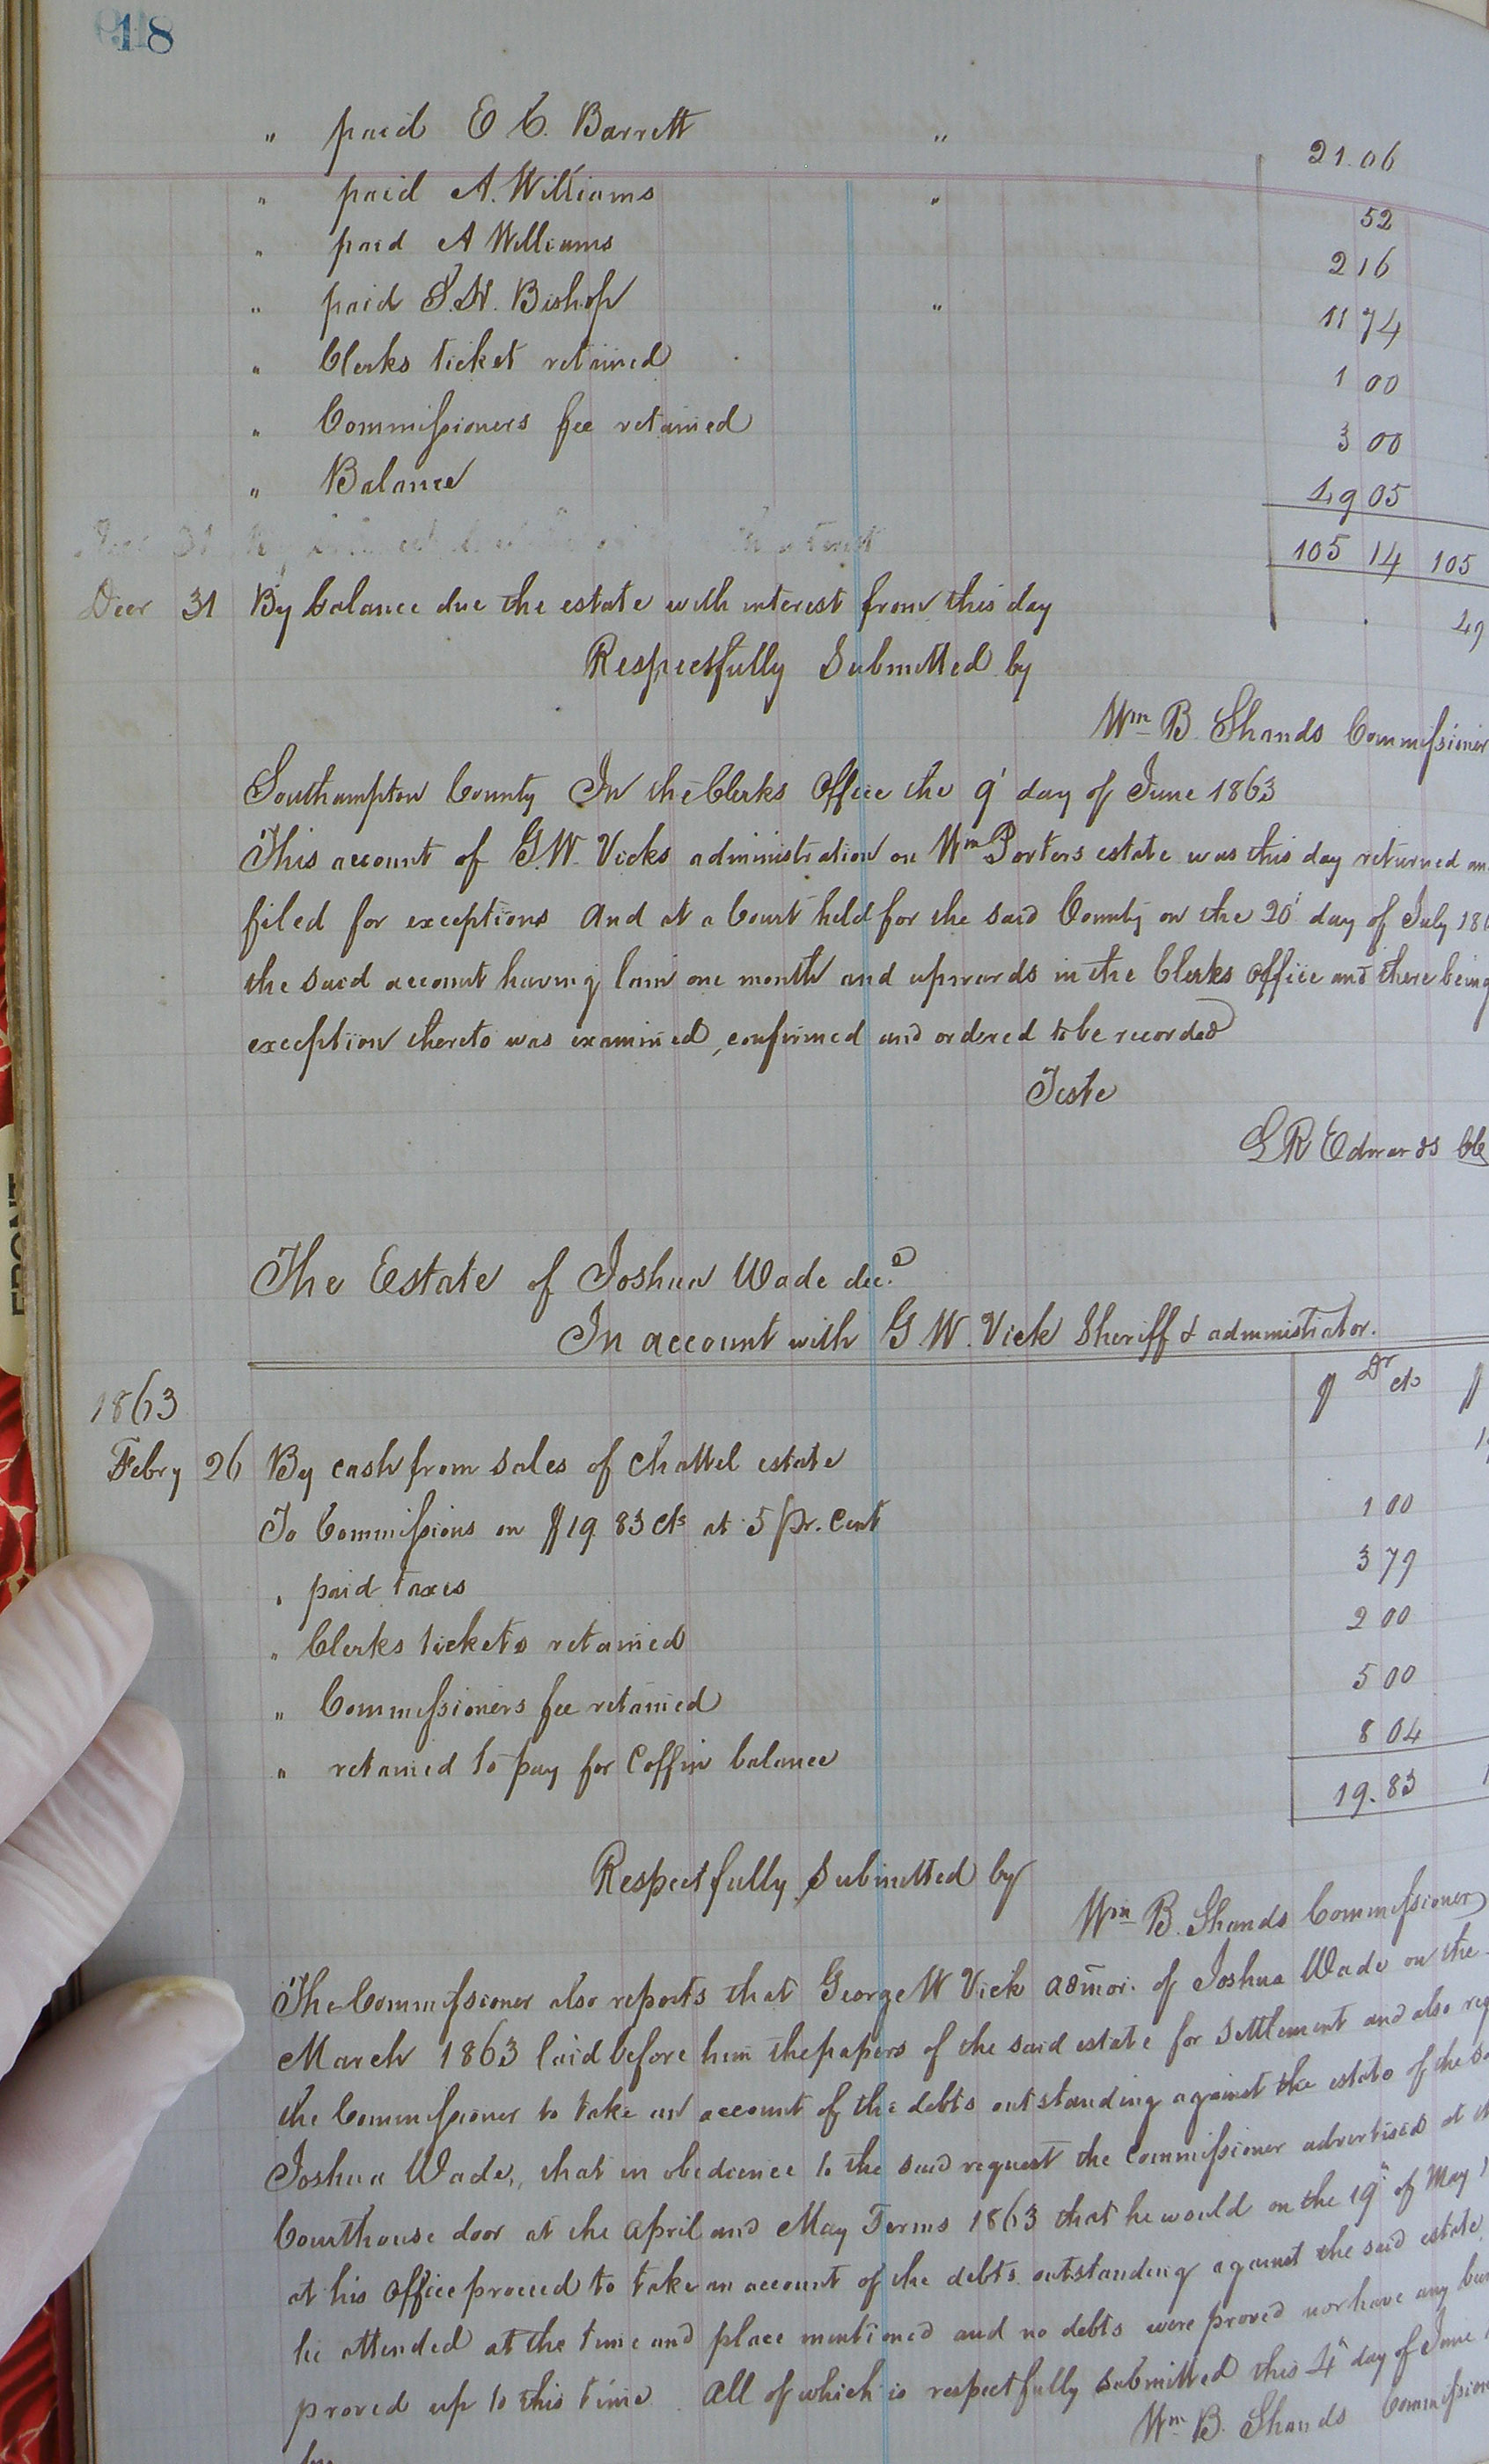 18
" paid E C. Barrett " 21.06
" paid A. Williams " 52
" paid A Williams 2 16
" paid S. N. Bishop " 11 74
" Clerks ticket retained 1 00
" Commissioners fee retained 3 00
" Balance 49 05
105 14 105
Decr 31 By balance due the estate with interest from this day 49
Respectfully Submitted by
Wm B. Shands Commissioner
Southampton County In the Clerks Office the 9' day of June 1863
This account of G. W. Vicks administration on Wm Porters estate was this day returned an
filed for exceptions And at a Court held for the said County on the 20' day of July 186
the said account having lain one month and upwards in the Clerks office and there being
exception thereto was examined, confirmed and ordered to be recorded
Teste
L R Edwards Cle
The Estate of Joshua Wade decd
In account with G. W. Vick Sheriff & administrator.
1863 $ Dr cts $
Febry 26 By cash from sales of chattel estate 1
To Commissions on $19 83 cts at 5 pr. Cent 1 00
" paid taxes 3 79
" Clerks tickets retained 2 00
" Commissioners fee retained 5 00
" retained to pay for Coffin balance 8 04
19.83 1
Respectfully Submitted by
Wm B. Shands Commissioner
The Commissioner also reports that George W Vick admor. of Joshua Wade on the
March 1863 laid before him the papers of the said estate for settlement and also req
the Commissioner to take an account of the debts outstanding against the estate of the sa
Joshua Wade, that in obedience to the said request the commissioner advertised at th
Courthouse door at the April and May Terms 1863 that he would on the 19" of May 1
at his office proceed to take an account of the debts outstanding against the said estate
he attended at the time and place mentioned and no debts were proved nor have any been
proved up to this time. All of which is respectfully submitted this 4" day of June
Wm B. Shands Commission